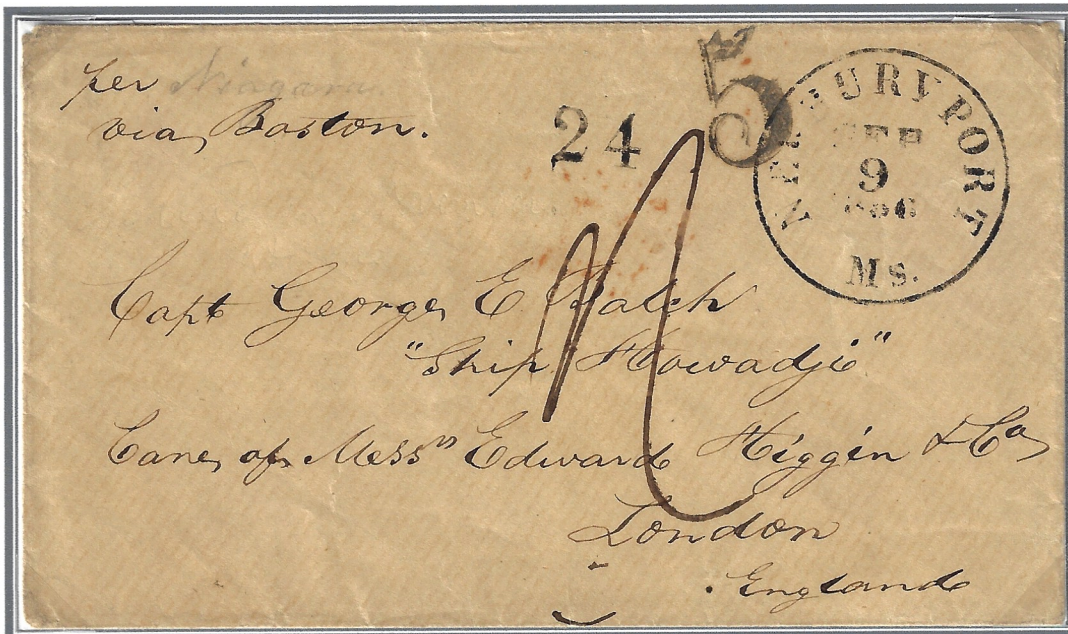 per Niagara
via Boston.
24
5
NEWBURYPORT
SEP
9
1856
Ms.
Capt George E Balch
"Ship Howadji"
Care of Messrs Edward Higgin & Co
London
England